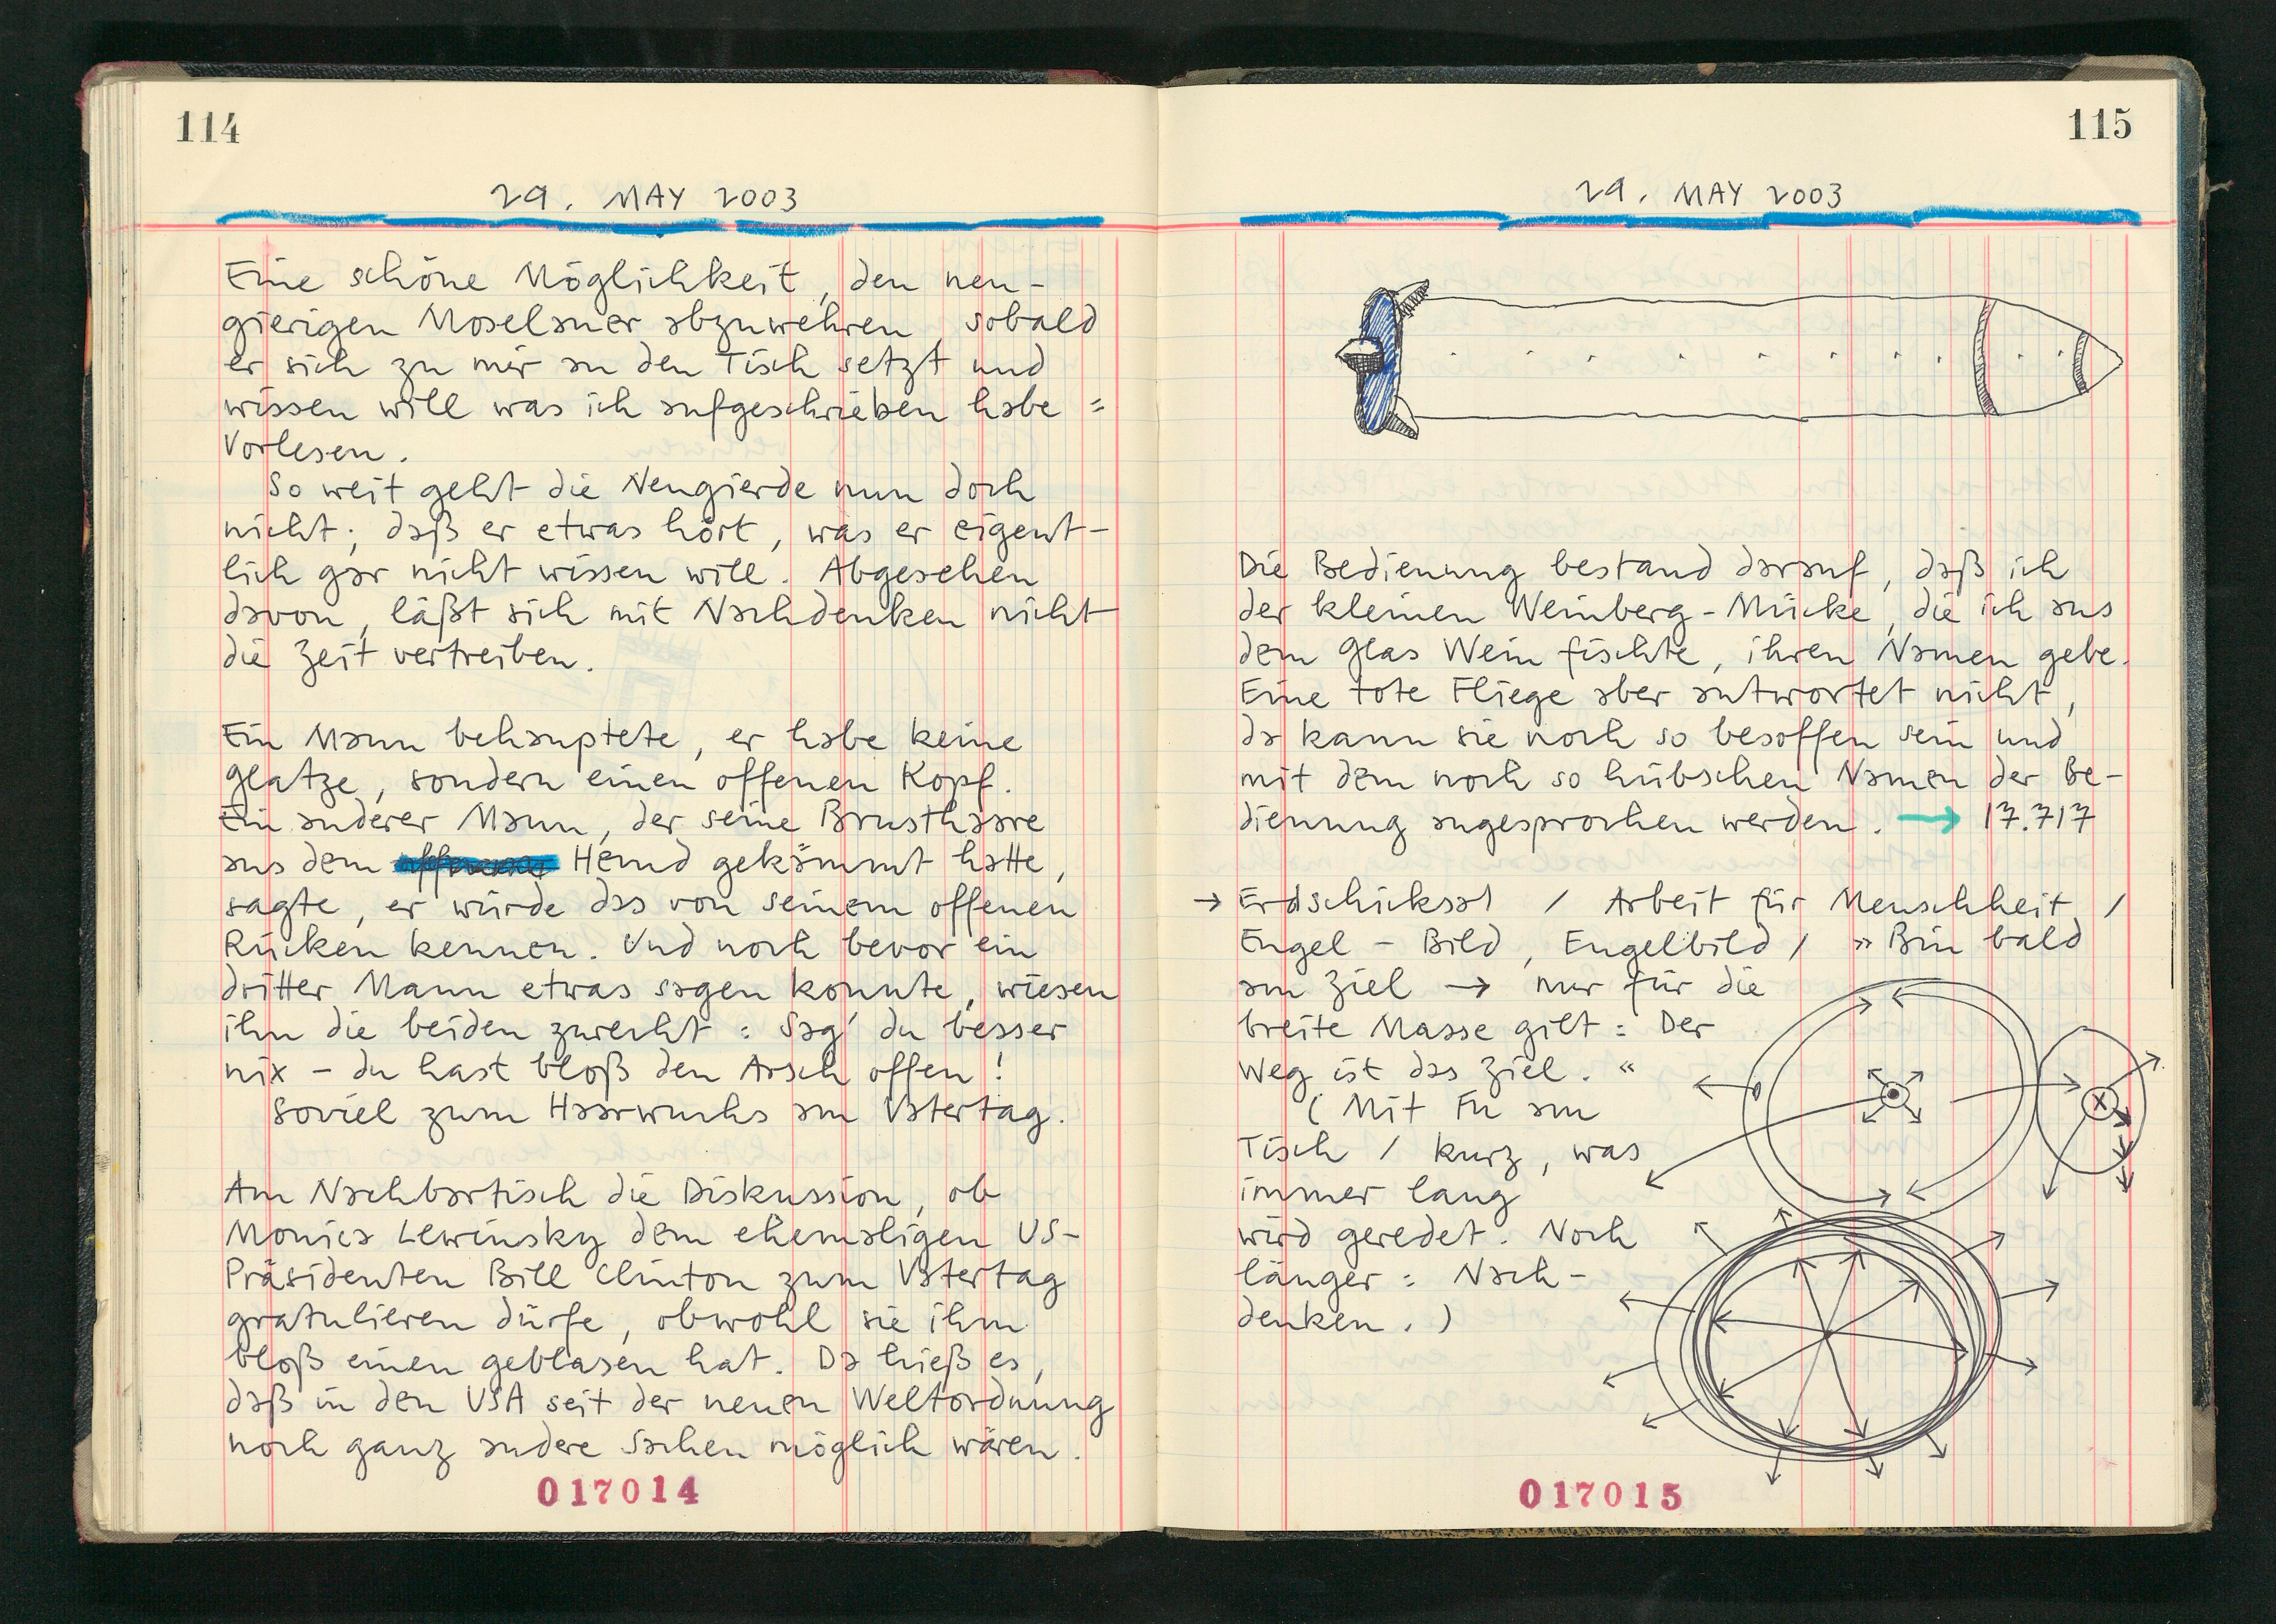 114
29. MAY 2003
Eine schöne Möglichkeit, den neu-
gierigen Moselaner abzuwehren, sobald
er sich zu mir an den Tisch setzt und
wissen will was ich aufgeschrieben habe =
Vorlesen.
So weit geht die Neugierde nun doch
nicht; daß er etwas hört, was er eigent-
lich gar nicht wissen will. Abgesehen
davon, läßt sich mit Nachdenken nicht
die Zeit vertreiben.
Ein Mann behauptete, er habe keine
Glatze, sondern einen offenen Kopf.
Ein anderer Mann, der seine Brusthaare
aus dem Hemd gekämmt hatte,
sagte, er würde das von seinem offenen
Rücken kennen. Und noch bevor ein
dritter Mann etwas sagen konnte, wiesen
ihn die beiden zurecht: Sag' du besser
nix – du hast bloß den Arsch offen!
Soviel zum Haarwuchs am Vatertag.
Am Nachbartisch die Diskussion, ob
Monica Lewinsky dem ehemaligen US-
Präsidenten Bill Clinton zum Vatertag
gratulieren dürfe, obwohl sie ihm
bloß einen geblasen hat. Da hieß es,
daß in den USA seit der neuen Weltordnung
noch ganz andere Sachen möglich wären.
017014
115
29. MAY 2003
Die Bedienung bestand darauf, daß ich
der kleinen Weinberg-Mücke, die ich aus
dem Glas Wein fischte, ihren Namen gebe.
Eine tote Fliege aber antwortet nicht,
da kann sie noch so besoffen sein und
mit dem noch so hübschen Namen der Be-
dienung angesprochen werden. → 17.717
→ Erdschicksal / Arbeit für Menschheit /
Engel – Bild, Engelbild / » Bin bald
am Ziel → nur für die
breite Masse gilt: Der
Weg ist das Ziel. «
(Mit Fu am
Tisch / kurz, was
immer lang
wird geredet. Noch
länger: Nach-
denken.)
x
017015